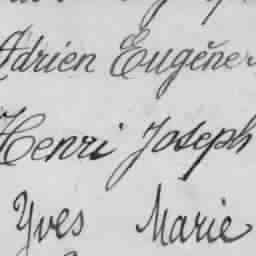 Adrien Eugène
Henri Joseph
Yves Marie